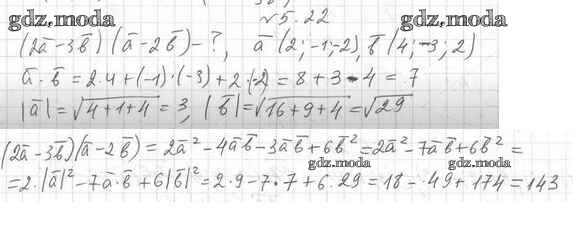 gdz.moda √5.22 gdz.moda
(2a̅ - 3b̅)(a̅ - 2b̅) - ?, a̅ (2; -1; -2), b̅ (4; -3; 2)
a̅ · b̅ = 2·4 + (-1)·(-3) + 2·(-2) = 8 + 3 - 4 = 7
|a̅| = √4+1+4 = 3, |b̅| = √16+9+4 = √29
(2a̅ - 3b̅)(a̅ - 2b̅) = 2a̅² - 4a̅b̅ - 3a̅b̅ + 6b̅² = 2a̅² - 7a̅b̅ + 6b̅² =
gdz.moda gdz.moda
= 2·|a̅|² - 7a̅·b̅ + 6|b̅|² = 2·9 - 7·7 + 6·29 = 18 - 49 + 174 = 143